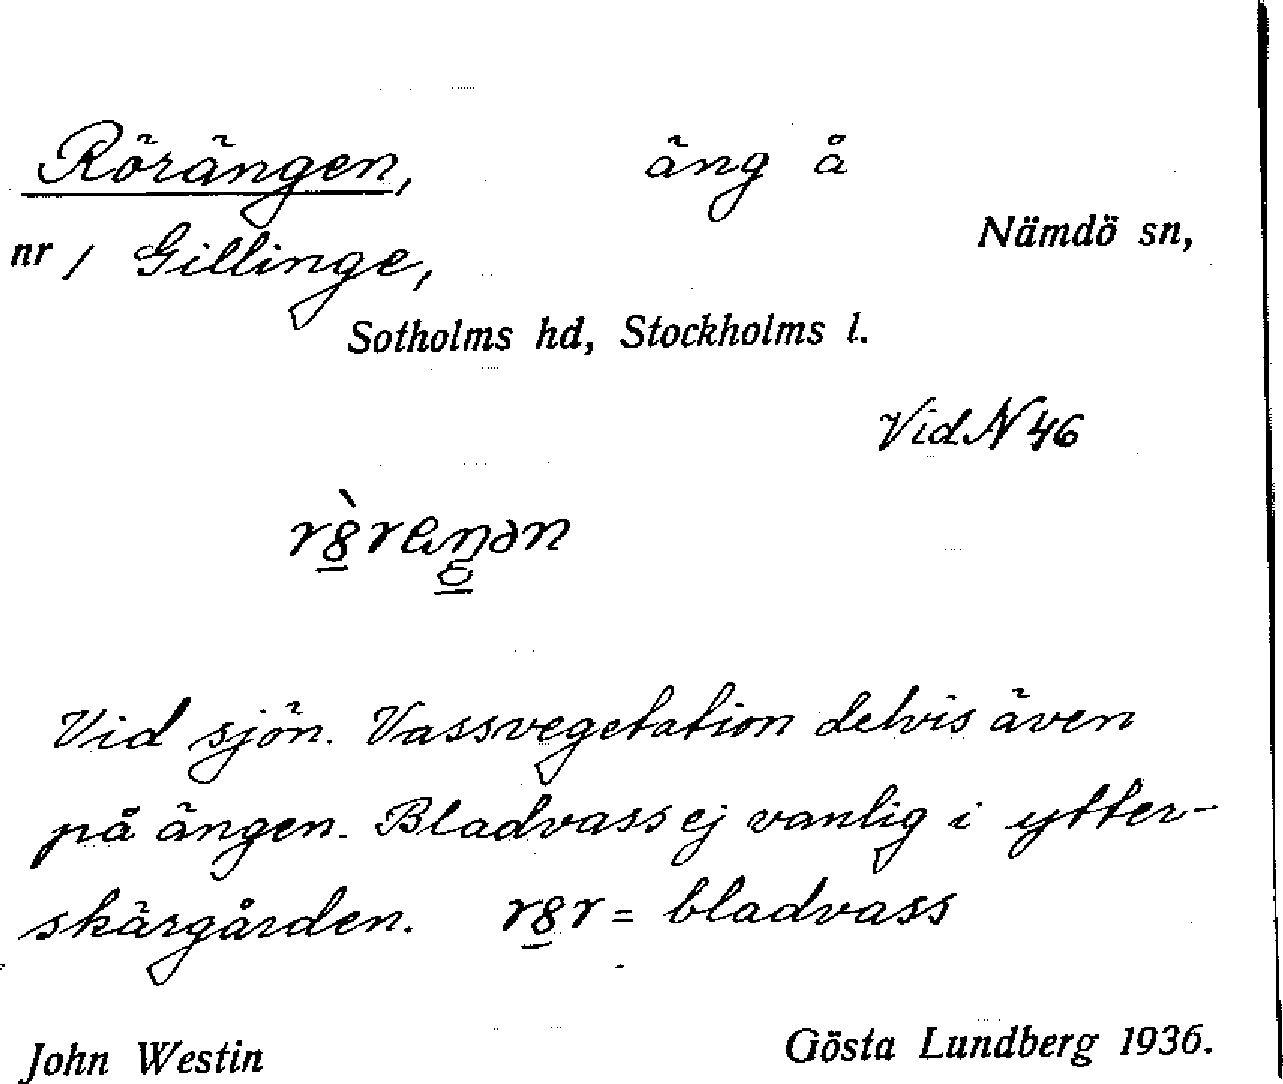 Rörängen, äng å
Nämdö sn,
nr 1 Gillinge,
Sotholms hd, Stockholms l.
Vid N 46
Vid sjön. Vassvegetation delvis även
på ängen. Bladvass ej vanlig i ytter-
skärgården. = bladvass
John Westin Gösta Lundberg 1936.